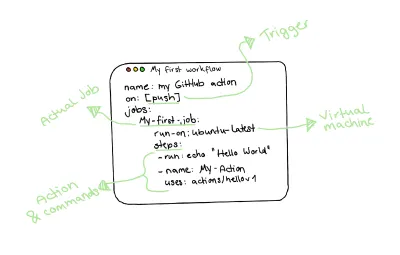 Trigger
My first workflow
name: my GitHub action
on: [push]
jobs:
Actual Job
My-first-job:
run-on: ubuntu-latest
Virtual machine
steps:
-run: echo "Hello World"
-name: My-Action
uses: actions/hellov1
Action
& commands